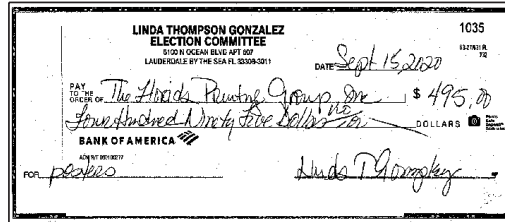 LINDA THOMPSON GONZALEZ
ELECTION COMMITTEE
5100 N OCEAN BLVD APT 607
LAUDERDALE BY THE SEA FL 33308-3011
1035
DATE Sept 15, 2020
PAY TO THE ORDER OF The Florida Printing Group, Inc $ 495.00
Four Hundred Ninety Five Dollars DOLLARS
BANK OF AMERICA
FOR posters Linda T Gonzalez